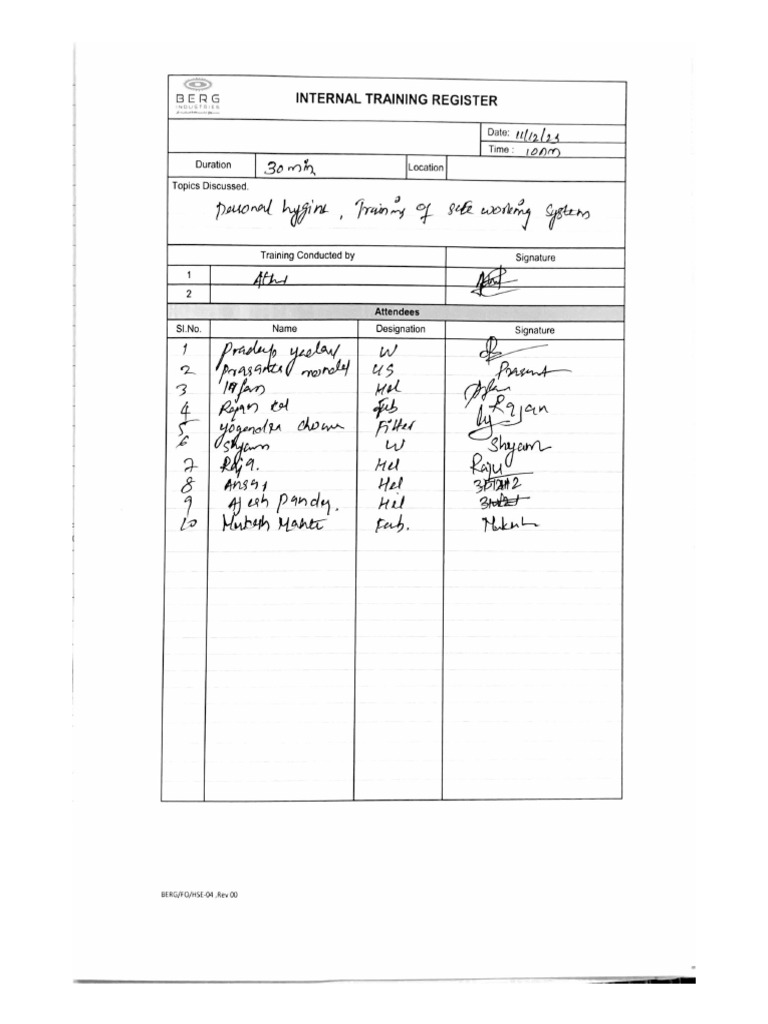 BERG
INDUSTRIES
INTERNAL TRAINING REGISTER
Date: 11/12/23
Time : 10AM
Duration 30 min Location
Topics Discussed.
personal hygine, Training of safe working system
Training Conducted by Signature
1 Athul
2
Attendees
Sl.No. Name Designation Signature
1 Pradeep yadav W
2 Prasanta mondal US Prasant
3 Irfan Hel
4 Rajan Fab Rajan
5 yogendra Fitter
6 Shyam W Shyam
7 Raja. Hel Raju
8 Ansari Hel
9 Ajesh Pandey. Hel
10 Mukesh Fab. Mukesh
BERG/FO/HSE-04 ,Rev 00